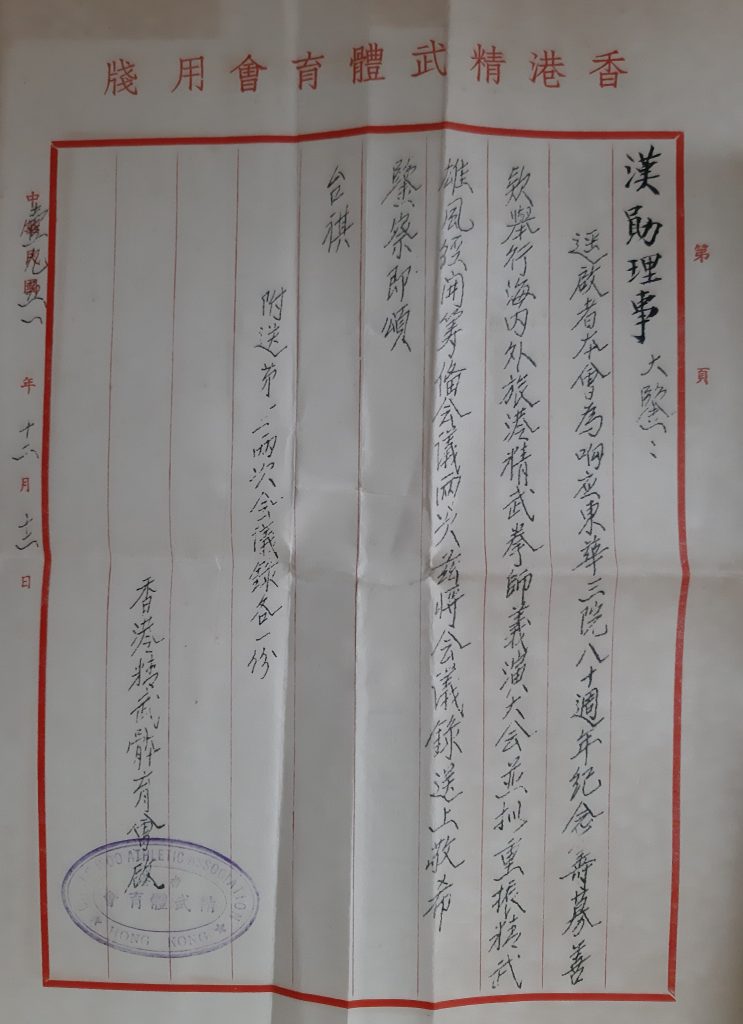 香港精武體育會用牋
第 頁
漢勛理事大鑒：
逕啟者本會為响应東華三院八十週年纪念籌募善
欵舉行海内外旅港精武拳師義演大会並拟重振精武
雄風经開籌俻会議兩次兹將会議錄送上敬希
鑒察即頌
台祺
附送第一二兩次会議錄各一份
香港精武體育會啟
年十二月十二日
ATHLETIC ASSOCIATION
精武體育會
HONG KONG